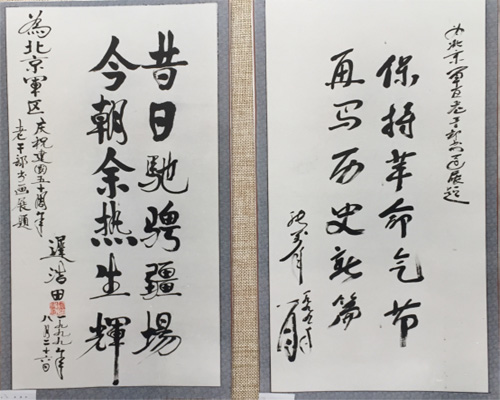 昔日馳騁疆場
今朝余热生輝
為北京軍区
庆祝建国五十周年
老干部书画展题
遲浩田
一九九九年
八月二十六日
为北京军区老干部书画展题
保持革命气节
再写历史新篇
张万年